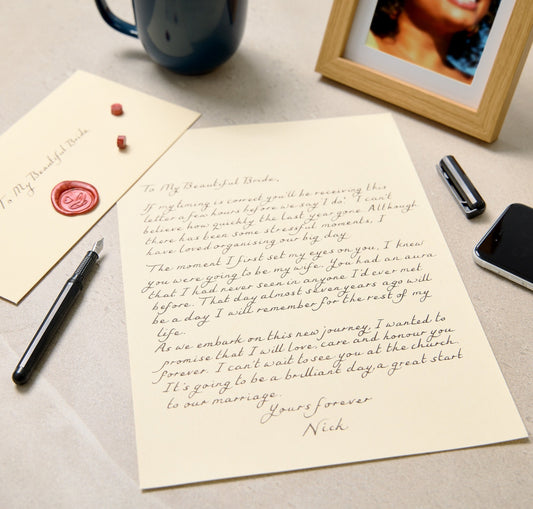 To My Beautiful Bride
To My Beautiful Bride,
If my timing is correct you'll be receiving this
letter a few hours before we say 'I do'. I can't
believe how quickly the last year gone. Although
there has been some stressful moments, I
have loved organising our big day.
The moment I first set my eyes on you, I knew
you were going to be my wife. You had an aura
that I had never seen in anyone I'd ever met
before. That day almost seven years ago will
be a day I will remember for the rest of my
life.
As we embark on this new journey, I wanted to
promise that I will love, care and honour you
forever. I can't wait to see you at the church.
It's going to be a brilliant day, a great start
to our marriage.
Yours forever
Nick